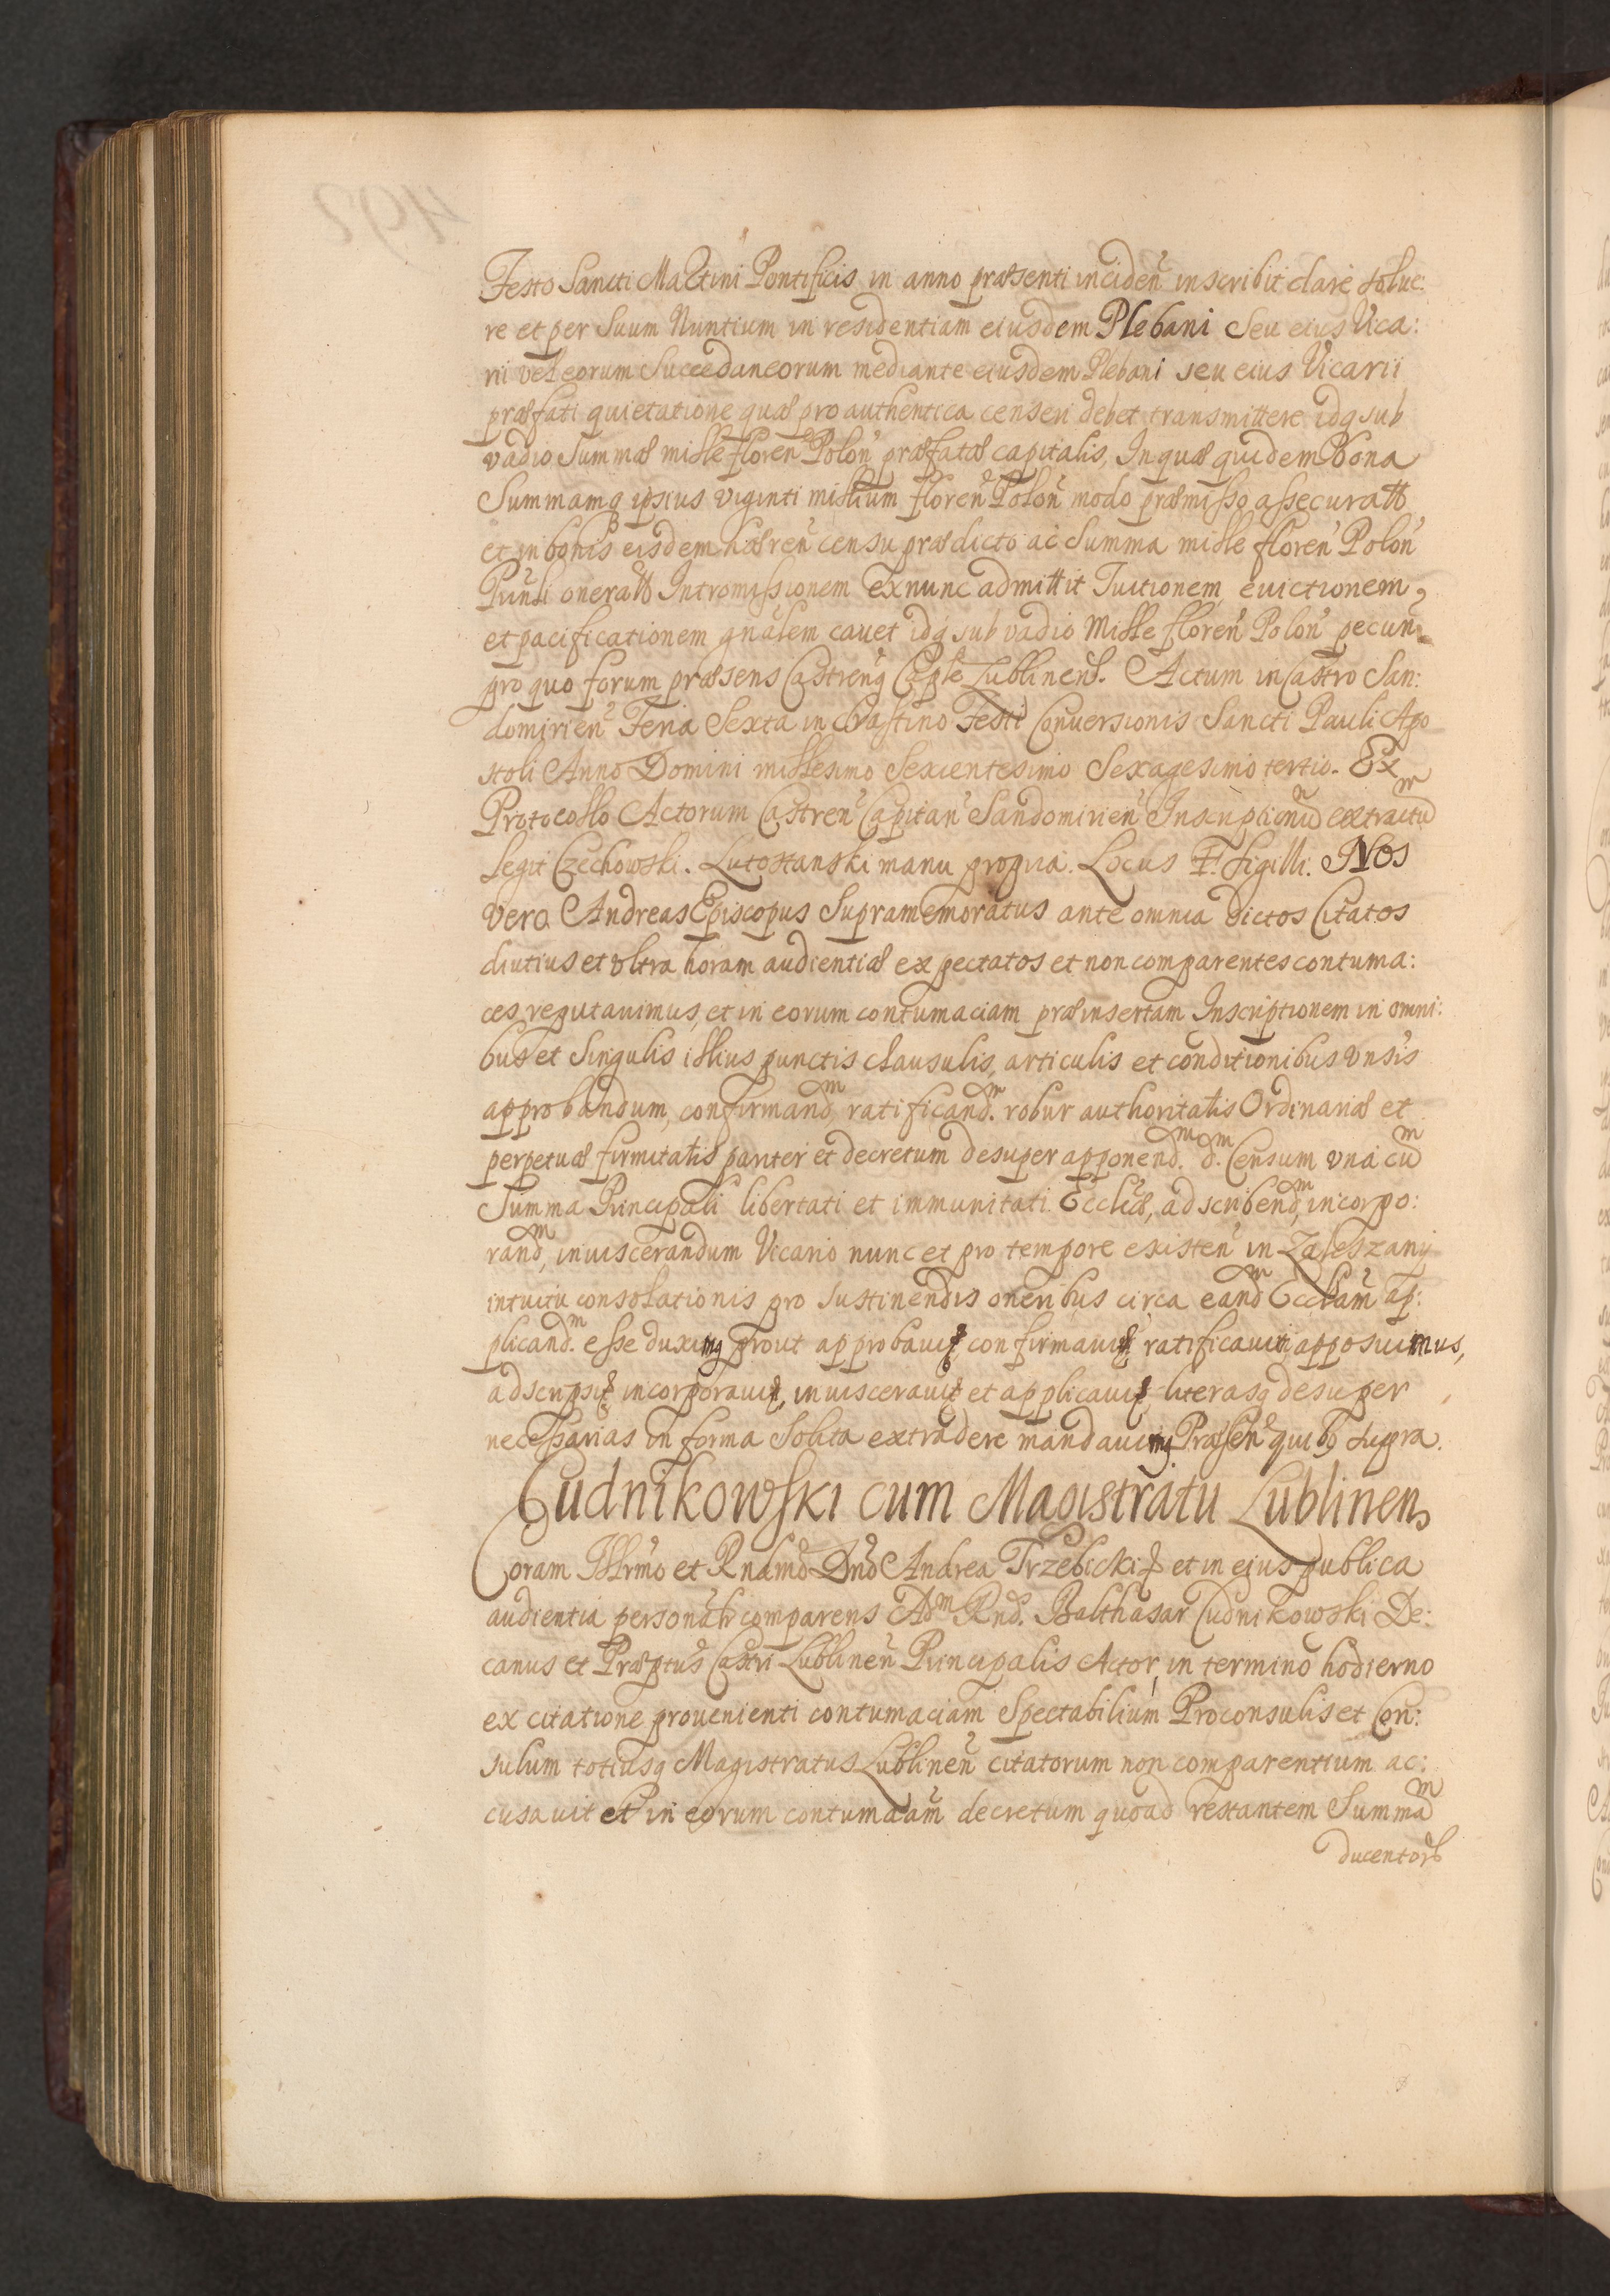 Festo Sancti Martini Pontificis in anno præsenti inciden̄ inscribit dare solue:
re et per Suum Nuntium in residentiam eiusdem Plebani Seu eius Vica:
rii vel eorum Succedaneorum mediante eiusdem Plebani seu eius Vicarii
præfati quietatione quæ pro authentica censeri debet transmittere idq sub
vadio Summæ mille floren̄ Polon̄ præfatæ capitalis, In quæ quidem bona
Summamq ipsius viginti millium floren̄ Polon̄ modo præmisso assecurat
et in bonis eisdem hæren̄ censu prædicto ac Summa mille floren̄ Polon̄
onerat Intromissionem ex nunc admittit Tuitionem euictionem,
et pacificationem gnālem cauet idq sub vadio Mille floren̄ Polon̄ pecun
pro quo forum præsens Castren̄ Lublinens. Actum in Castro San:
domirien̄ Feria Sexta in Crastino Festi Conuersionis Sancti Pauli Apo
stoli Anno Domini millesimo Sexcentesimo Sexagesimo tertio. Ex
Protocollo Actorum Castren̄ Capitan̄ Sandomirien̄ Inscriptionū extractū
Legit Czechowski. Lutostanski manu propria. Locus Sigilli. Nos
vero Andreas Episcopus Supramemoratus ante omnia dictos Citatos
diutius et vltra horam audientiæ expectatos et non comparentes contuma:
ces reputauimus, et in eorum contumaciam præinsertam Inscriptionem in omni:
bus et Singulis illius punctis clausulis, articulis et conditionibus vnsis
approbandum, confirmand.m ratificand.m robur authoritatis Ordinariæ et
perpetuæ firmitatis pariter et decretum desuper apponend.m d.m Censum vna cū
Summa Principali libertati et immunitati Eccliæ, adscribend.m incorpo:
rand.m, inuiscerandum Vicario nunc et pro tempore existen̄ in Zaleszany
intuitu consolationis pro sustinendis oneribus circa eand.m Eccliam ap:
plicand.m esse duximq prout approbauit, confirmauit, ratificauit, apposuimus,
adscripsit incorporauit, inuiscerauit et applicauit literasq desuper
necessarias in forma Solita extradere mandauimq Præsen̄ quibq supra.
Cudnikowski cum Magistratu Lublinen
Coram Illrmo et Rndmo Dno Andrea Trzebicki et in eius publica
audientia personalr comparens Adm Rnd. Balthasar Cudnikowski De:
canus et Præptus Castri Lublinen̄ Principalis Actor, in termino hodierno
ex citatione prouenienti contumaciam Spectabilium Proconsulis et Con:
sulum totiusq Magistratus Lublinen̄ citatorum non comparentium ac:
cusauit et in eorum contumaciam decretum quoad restantem Summā
ducentor